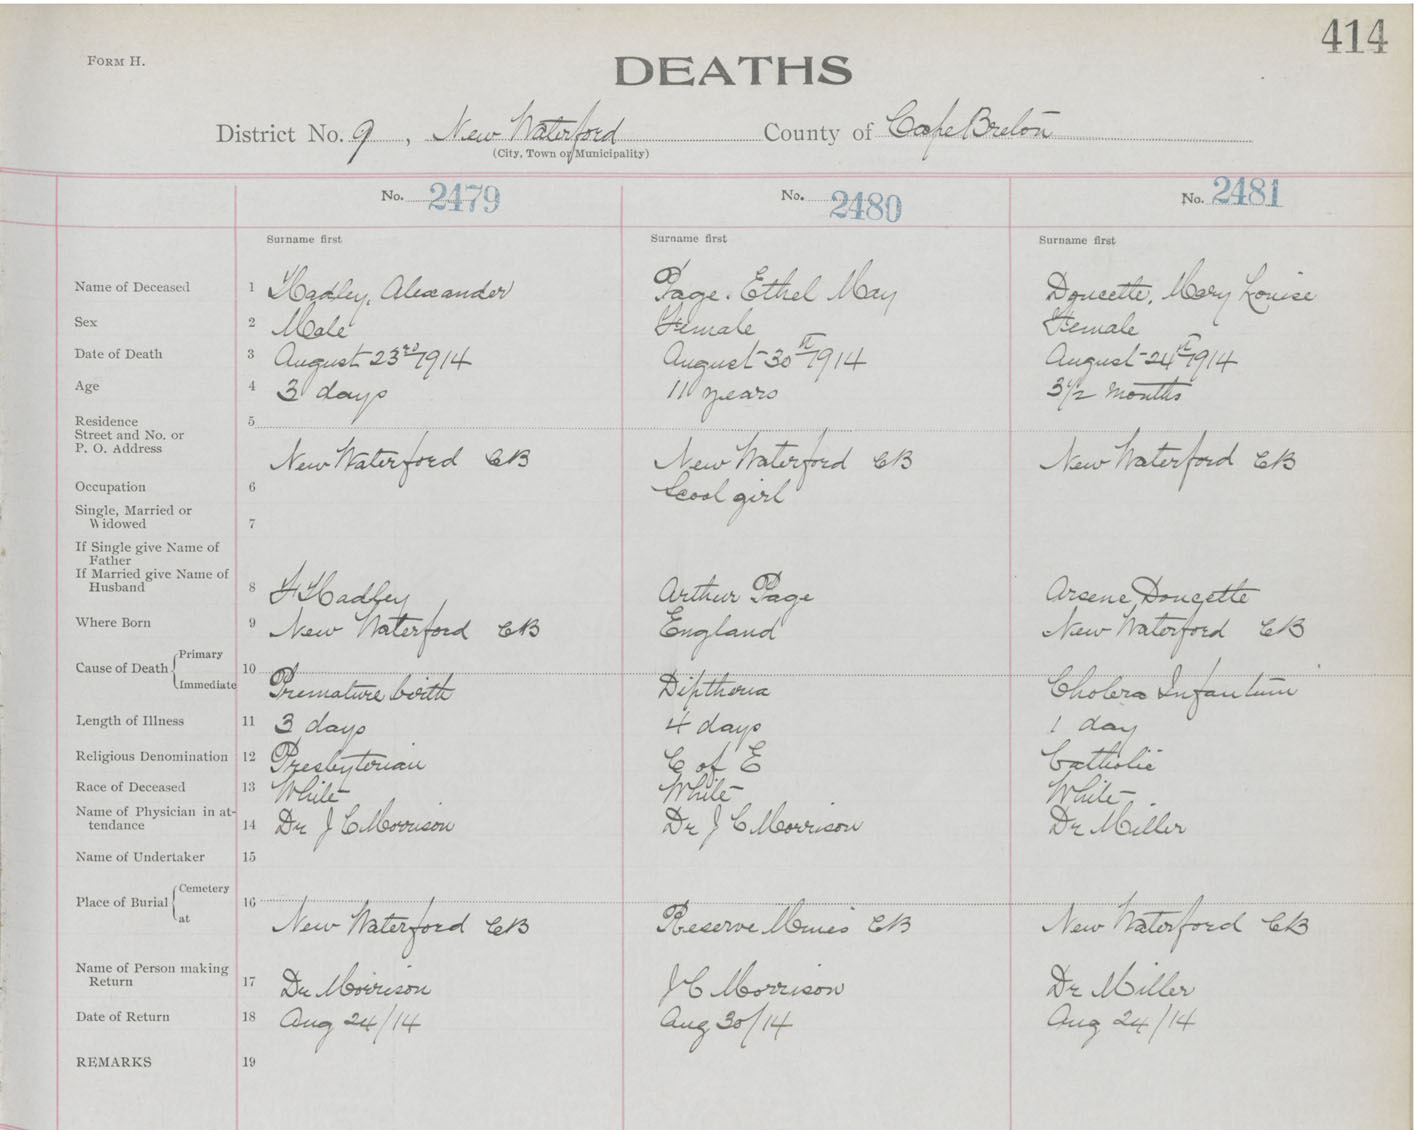 414
FORM H.
DEATHS
District No. 9, New Waterford County of Cape Breton
(City, Town or Municipality)
No. 2479 No. 2480 No. 2481
Surname first Surname first Surname first
Name of Deceased 1 Hadley, Alexander Page. Ethel May Doucette, Mary Louise
Sex 2 Male Female Female
Date of Death 3 August 23rd 1914 August 30th 1914 August 24th 1914
Age 4 3 days 11 years 3 1/2 months
Residence 5
Street and No. or
P. O. Address New Waterford CB New Waterford CB New Waterford CB
Occupation 6 Scool girl
Single, Married or
Widowed 7
If Single give Name of
Father
If Married give Name of
Husband 8 Hadley Arthur Page Arsene Doucette
Where Born 9 New Waterford CB England New Waterford CB
Cause of Death Primary 10
Immediate Premature birth Diptheria Cholera Infantum
Length of Illness 11 3 days 4 days 1 day
Religious Denomination 12 Presbyterian C of E Catholic
Race of Deceased 13 White White White
Name of Physician in at-
tendance 14 Dr J C Morrison Dr J C Morrison Dr Miller
Name of Undertaker 15
Place of Burial Cemetery 16
at New Waterford CB Reserve Mines CB New Waterford CB
Name of Person making
Return 17 Dr Morrison J C Morrison Dr Miller
Date of Return 18 Aug 24/14 Aug 30/14 Aug 24/14
REMARKS 19